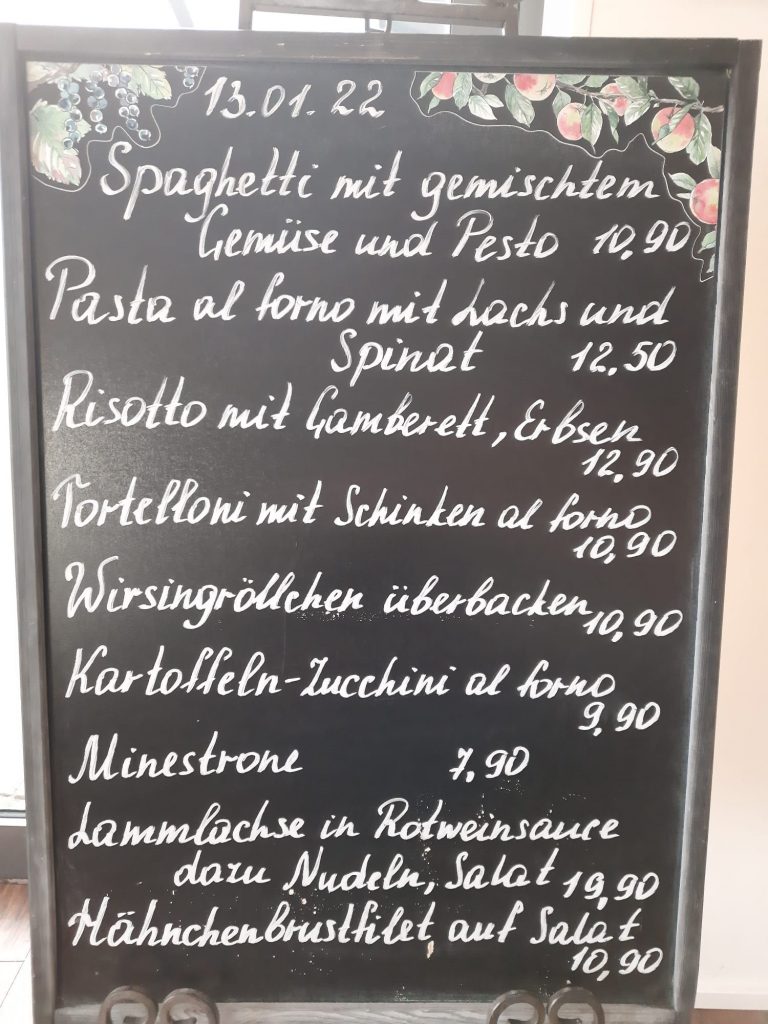 13.01.22
Spaghetti mit gemischtem
Gemüse und Pesto 10,90
Pasta al forno mit Lachs und
Spinat 12.50
Risotto mit Gamberett, Erbsen
12,90
Tortelloni mit Schinken al forno
10,90
Wirsingröllchen überbacken
10,90
Kartoffeln-Zucchini al forno
9,90
Minestrone 7,90
Lammlachse in Rotweinsauce
dazu Nudeln, Salat 19,90
Hähnchenbrustfilet auf Salat
10,90